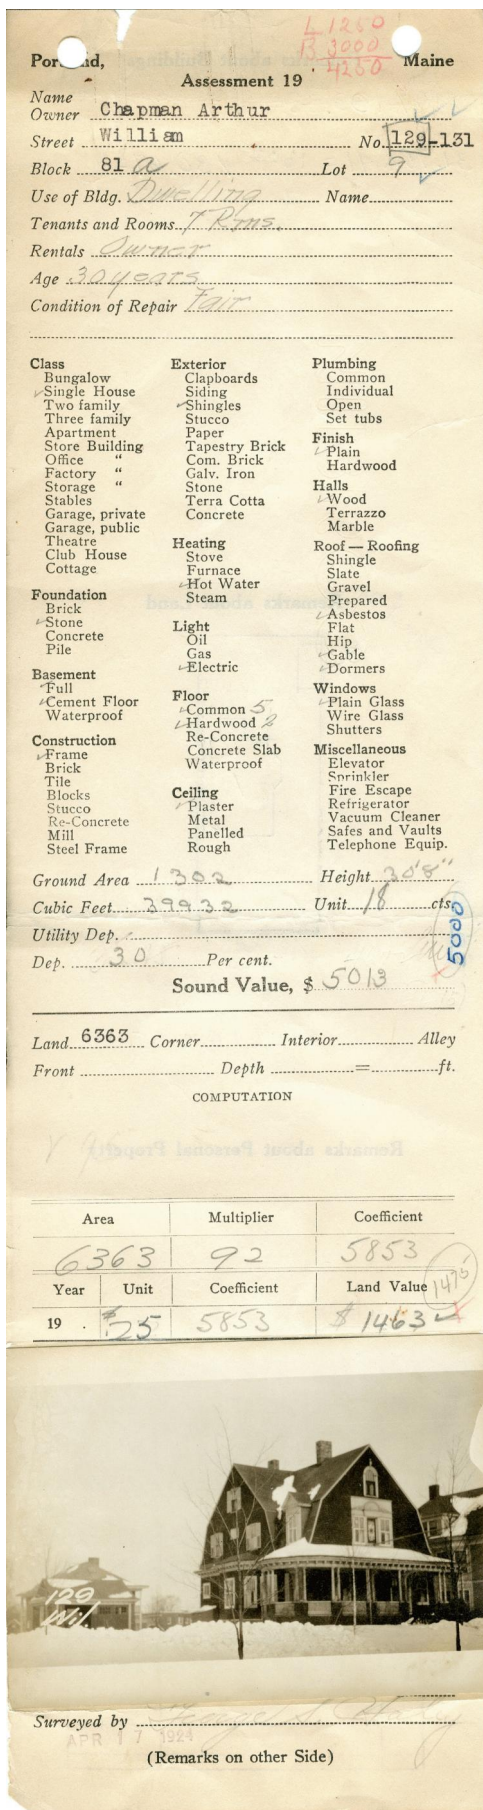 L 1250
B 3000
4250
Portland, Maine
Assessment 19
Name
Owner Chapman Arthur
Street William No. 129-131
Block 81 a Lot 9
Use of Bldg. Dwelling Name
Tenants and Rooms 7 Rms.
Rentals Owner
Age 30 years
Condition of Repair Fair
Class
Bungalow
✓Single House
Two family
Three family
Apartment
Store Building
Office "
Factory "
Storage "
Stables
Garage, private
Garage, public
Theatre
Club House
Cottage
Foundation
Brick
✓Stone
Concrete
Pile
Basement
✓Full
✓Cement Floor
Waterproof
Construction
✓Frame
Brick
Tile
Blocks
Stucco
Re-Concrete
Mill
Steel Frame
Exterior
Clapboards
Siding
✓Shingles
Stucco
Paper
Tapestry Brick
Com. Brick
Galv. Iron
Stone
Terra Cotta
Concrete
Heating
Stove
Furnace
✓Hot Water
Steam
Light
Oil
Gas
✓Electric
Floor
✓Common 5
✓Hardwood 2
Re-Concrete
Concrete Slab
Waterproof
Ceiling
✓Plaster
Metal
Panelled
Rough
Plumbing
Common
Individual
Open
Set tubs
Finish
✓Plain
Hardwood
Halls
✓Wood
Terrazzo
Marble
Roof — Roofing
Shingle
Slate
Gravel
Prepared
✓Asbestos
Flat
Hip
✓Gable
✓Dormers
Windows
✓Plain Glass
Wire Glass
Shutters
Miscellaneous
Elevator
Sprinkler
Fire Escape
Refrigerator
Vacuum Cleaner
Safes and Vaults
Telephone Equip.
Ground Area 1302 Height 30'8"
Cubic Feet 39932 Unit 18 cts.
5000
Utility Dep.
Dep. 30 Per cent.
Sound Value, $ 5013
Land 6363 Corner Interior Alley
Front Depth = ft.
COMPUTATION
Area Multiplier Coefficient
6363 92 5853
Year Unit Coefficient Land Value 1475
19 . $.25 5853 $ 1463 ✓
129
Wil.
Surveyed by
APR 17 1924
(Remarks on other Side)